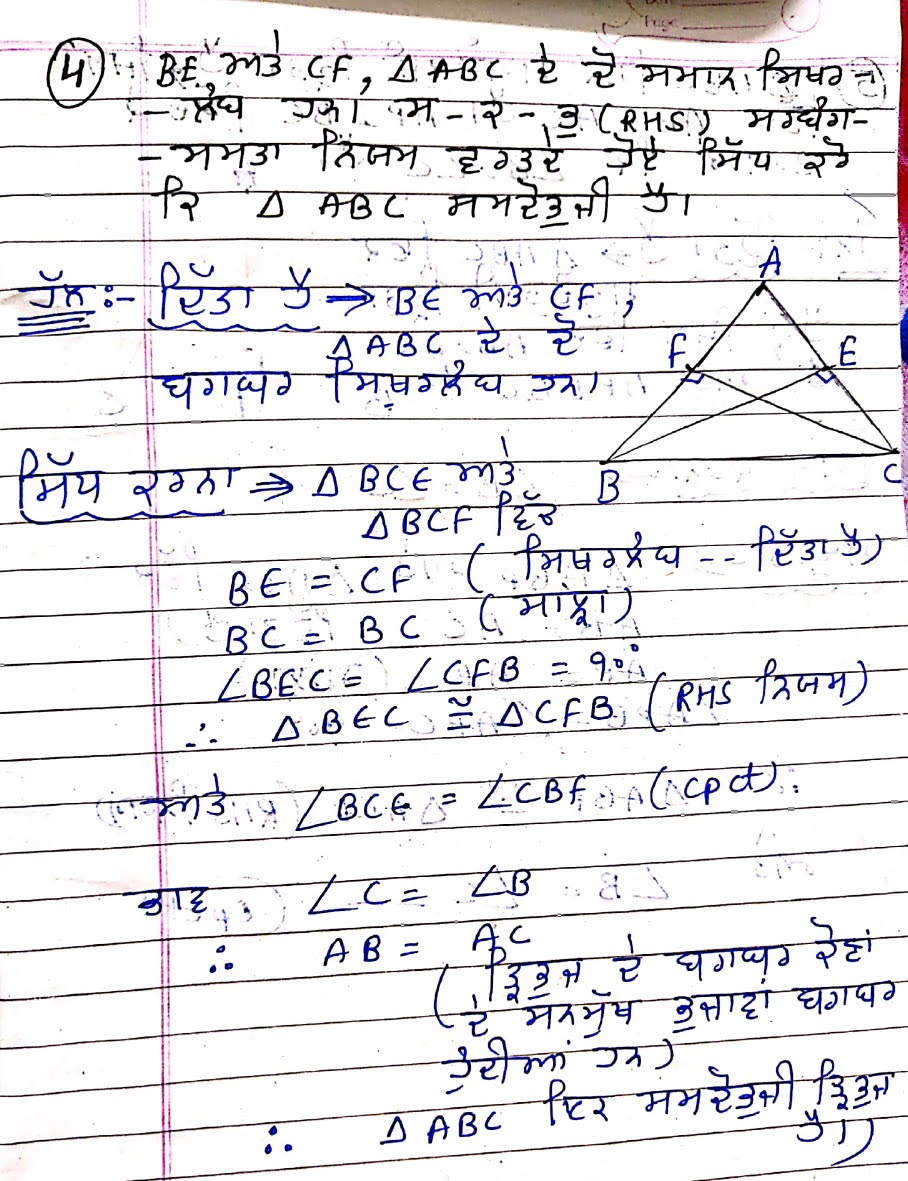 ④ BE ਅਤੇ CF, Δ ABC ਦੇ ਦੋ ਸਮਾਨ ਸਿਖਰ-
- ਲੰਬ ਹਨ। ਸ - ਕ - ਭੁ (RHS) ਸਰਬੰਗ-
- ਸਮਤਾ ਨਿਯਮ ਵਰਤਦੇ ਹੋਏ ਸਿੱਧ ਕਰੋ
ਕਿ Δ ABC ਸਮਦੋਭੁਜੀ ਹੈ।
ਹੱਲ :- ਦਿੱਤਾ ਹੈ ⇒ BE ਅਤੇ CF,
Δ ABC ਦੇ ਦੋ
ਬਰਾਬਰ ਸਿਖਰਲੰਬ ਹਨ।
A
F
E
B
C
ਸਿੱਧ ਕਰਨਾ ⇒ Δ BCE ਅਤੇ
Δ BCF ਵਿੱਚ
BE = CF ( ਸਿਖਰਲੰਬ -- ਦਿੱਤਾ ਹੈ)
BC = BC (ਸਾਂਝਾ)
∠BEC = ∠CFB = 90°
∴ Δ BEC ≅ Δ CFB (RHS ਨਿਯਮ)
ਅਤੇ ∠BCE = ∠CBF (cpct).
ਭਾਵ ∠C = ∠B
∴ AB = AC
( ਤ੍ਰਿਭੁਜ ਦੇ ਬਰਾਬਰ ਕੋਣਾਂ
ਦੇ ਸਨਮੁੱਖ ਭੁਜਾਵਾਂ ਬਰਾਬਰ
ਹੁੰਦੀਆਂ ਹਨ)
∴ Δ ABC ਇਕ ਸਮਦੋਭੁਜੀ ਤ੍ਰਿਭੁਜ
ਹੈ।